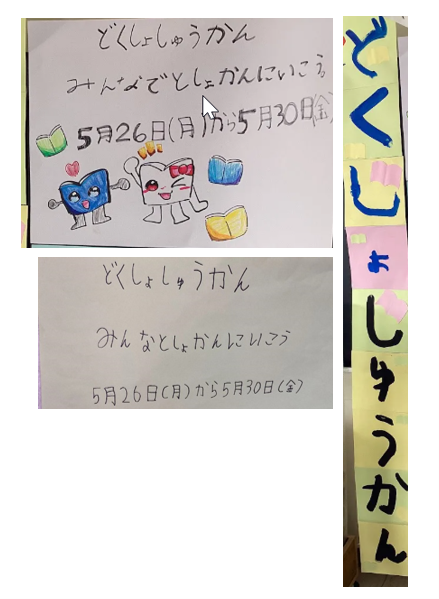 どくしょしゅうかん
みんなでとしょかんにいこう
5月26日(月)から5月30日(金)
どくしょしゅうかん
みんなとしょかんにいこう
5月26日(月)から5月30日(金)
どくしょしゅうかん